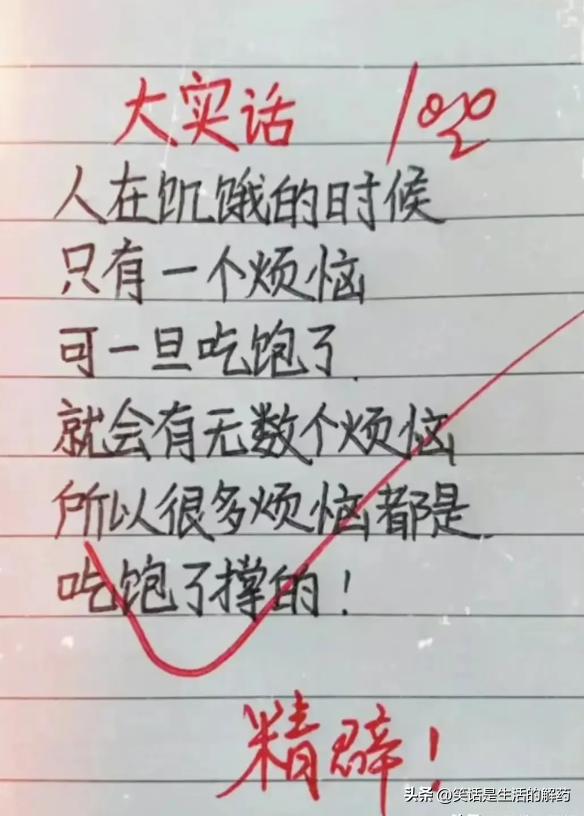 大实话 100
人在饥饿的时候
只有一个烦恼
可一旦吃饱了
就会有无数个烦恼
所以很多烦恼都是
吃饱了撑的！
精辟！
头条 @笑话是生活的解药